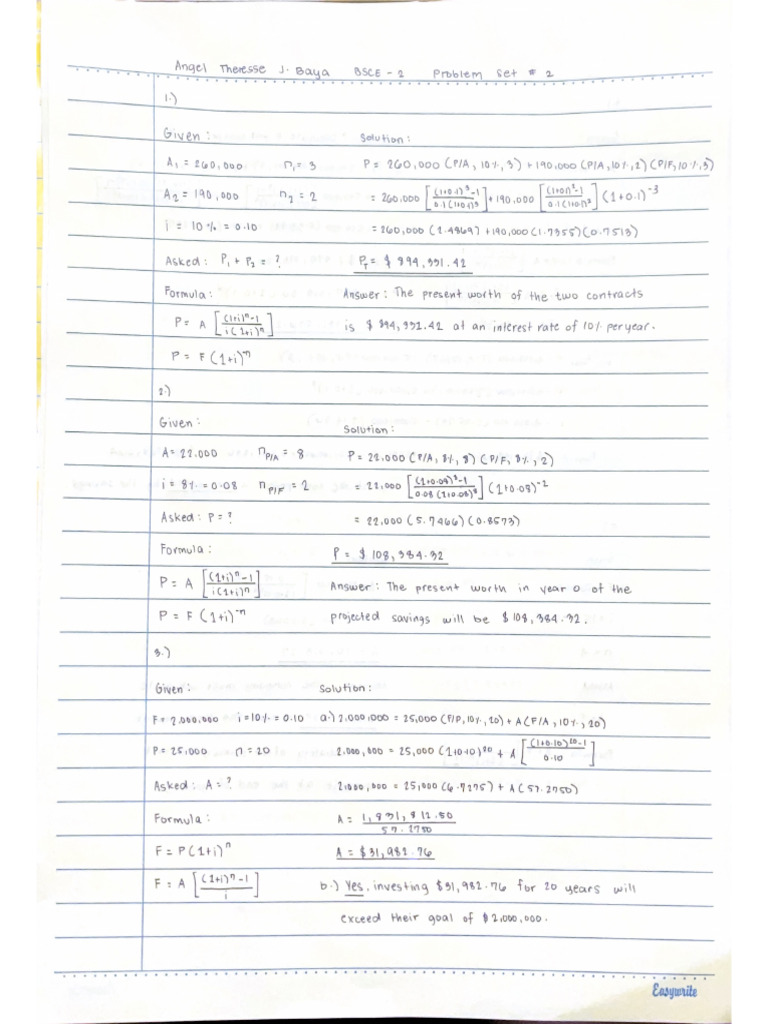 Angel Theresse J. Baya BSCE - 2 Problem Set # 2
1.)
Given : Solution :
A₁ = 260,000 n₁ = 3 P = 260,000 (P/A, 10%, 3) + 190,000 (P/A, 10%, 2) (P/F, 10%, 3)
A₂ = 190,000 n₂ = 2 = 260,000 [(1+0.1)³-1 / 0.1(1+0.1)³] + 190,000 [(1+0.1)²-1 / 0.1(1+0.1)²] (1+0.1)⁻³
i = 10% = 0.10 = 260,000 (2.4869) + 190,000 (1.7355) (0.7513)
Asked : P₁ + P₂ = ? P_T = $ 894,331.42
Formula : Answer : The present worth of the two contracts
P = A [(1+i)ⁿ-1 / i(1+i)ⁿ] is $ 894,332.42 at an interest rate of 10% per year.
P = F (1+i)ⁿ
2.)
Given : Solution :
A = 22,000 n_P/A = 8 P = 22,000 (P/A, 8%, 8) (P/F, 8%, 2)
i = 8% = 0.08 n_P/F = 2 = 22,000 [(1+0.08)⁸-1 / 0.08(1+0.08)⁸] (1+0.08)⁻²
Asked : P = ? = 22,000 (5.7466) (0.8573)
Formula : P = $ 108,384.32
P = A [(1+i)ⁿ-1 / i(1+i)ⁿ] Answer : The present worth in year 0 of the
P = F (1+i)⁻ⁿ projected savings will be $ 108,384.32.
3.)
Given : Solution :
F = 2,000,000 i = 10% = 0.10 a.) 2,000,000 = 25,000 (F/P, 10%, 20) + A (F/A, 10%, 20)
P = 25,000 n = 20 2,000,000 = 25,000 (1+0.10)²⁰ + A [(1+0.10)²⁰-1 / 0.10]
Asked : A = ? 2,000,000 = 25,000 (6.7275) + A (57.2750)
Formula : A = 1,831,812.50 / 57.2750
F = P (1+i)ⁿ A = $31,982.76
F = A [(1+i)ⁿ-1 / i] b.) Yes, investing $31,982.76 for 20 years will
exceed their goal of $ 2,000,000.
Easywrite